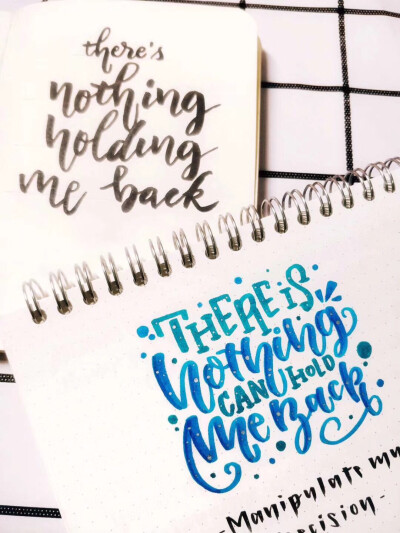 there's
nothing
holding
me back
THERE iS
Nothing
CAN HOLD
Me Back
-Manipulate